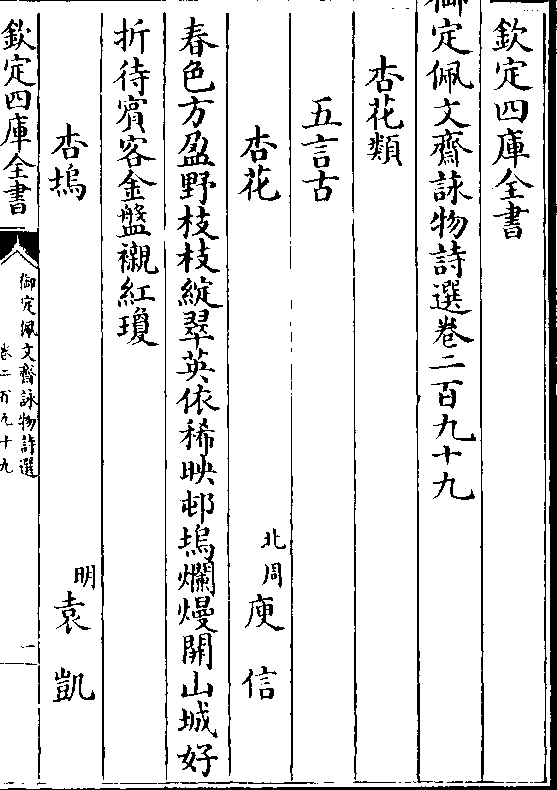 欽定四庫全書
御定佩文齋詠物詩選卷二百九十九
杏花類
五言古
杏花 北周 庾信
春色方盈野枝枝綻翠英依稀映邨塢爛熳開山城好
折待賓客金盤襯紅瓊
杏塢 明 袁凱
欽定四庫全書
御定佩文齋詠物詩選
卷二百九十九
一